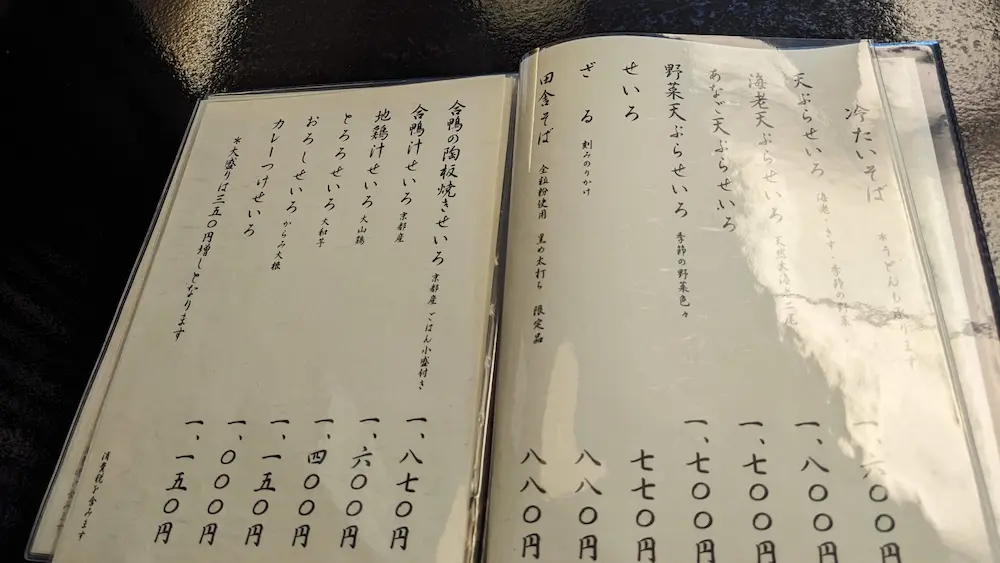 冷たいそば ＊うどんも承ります
天ぷらせいろ 海老・きす・季節の野菜 一、六〇〇円
海老天ぷらせいろ 天然大海老二尾 一、八〇〇円
あなご天ぷらせいろ 一、七〇〇円
野菜天ぷらせいろ 季節の野菜色々 一、七〇〇円
せいろ 七七〇円
ざる 刻みのりかけ 八八〇円
田舎そば 全粒粉使用 黒め太打ち 限定品 八八〇円
合鴨の陶板焼きせいろ 京都産 ごはん小盛付き 一、八七〇円
合鴨汁せいろ 京都産 一、六〇〇円
地鶏汁せいろ 大山鶏 一、四〇〇円
とろろせいろ 大和芋 一、一五〇円
おろしせいろ からみ大根 一、〇〇〇円
カレーつけせいろ 一、一五〇円
＊大盛りは三五〇円増しとなります
消費税を含みます